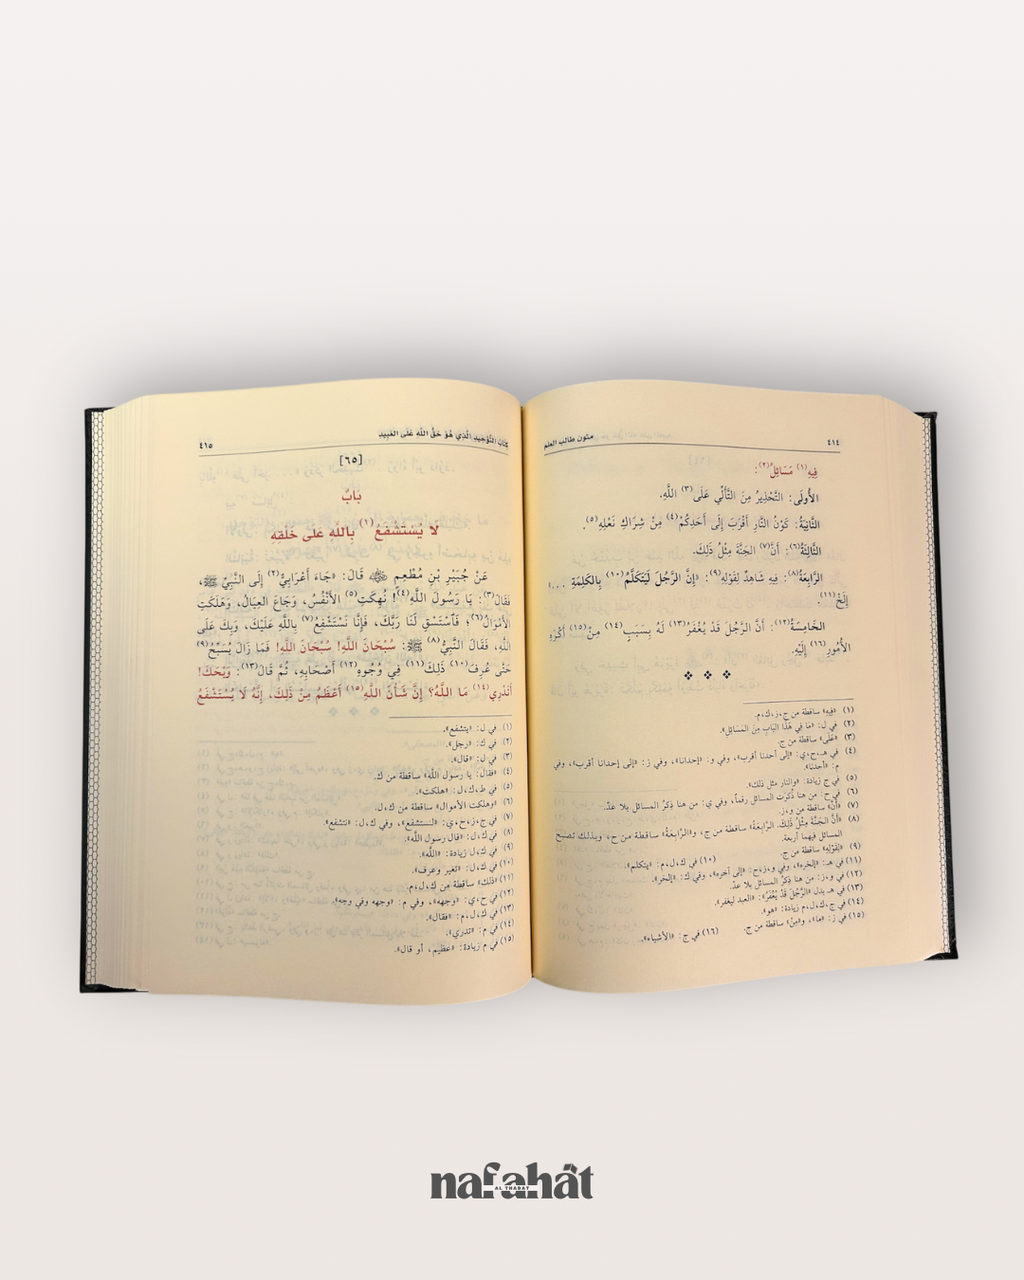 متون طالب العلم
٤١٤
فِيهِ(١) مَسَائِلُ(٢):
الأُولَى: التَّحْذِيرُ مِنَ التَّأَلِّي عَلَى(٣) اللَّهِ.
الثَّانِيَةُ: كَوْنُ النَّارِ أَقْرَبَ إِلَى أَحَدِكُمْ(٤) مِنْ شِرَاكِ نَعْلِهِ(٥).
الثَّالِثَةُ(٦): أَنَّ(٧) الجَنَّةَ مِثْلُ ذَلِكَ.
الرَّابِعَةُ(٨): فِيهِ شَاهِدٌ لِقَوْلِهِ(٩): «إِنَّ الرَّجُلَ لَيَتَكَلَّمُ(١٠) بِالكَلِمَةِ ...»
إِلَخْ(١١).
الخَامِسَةُ(١٢): أَنَّ الرَّجُلَ قَدْ يُغْفَرُ(١٣) لَهُ بِسَبَبٍ(١٤) مِنْ(١٥) أَكْرَهِ
الأُمُورِ(١٦) إِلَيْهِ.
(١) «فِيهِ» ساقطة من ج،ز،ك،م.
(٢) في ل: «مَا فِي هَذَا البَابِ مِنَ المَسَائِلِ».
(٣) «عَلَى» ساقطة من ج.
(٤) في هـ،ح،ي: «إلى أحدنا أقرب»، وفي و: «إحدانا»، وفي ز: «إلى إحدانا أقرب»، وفي
م: «أحدنا».
(٥) في ج زيادة: «والنار مثل ذلك».
(٦) في ح: من هنا ذُكِرَت المسائل رقماً، وفي ي: من هنا ذِكرُ المسائل بلا عدّ.
(٧) «أَنَّ» ساقطة من و،ز.
(٨) «أَنَّ الجَنَّةَ مِثْلُ ذَلِكَ. الرَّابِعَةُ» ساقطة من ج، و«الرَّابِعَةُ» ساقطة من ح، وبذلك تصبح
المسائل فيهما أربعة.
(٩) «لِقَوْلِهِ» ساقطة من ج.
(١٠) في ك،ل،م: «يتكلم».
(١١) في هـ: «إلخره»، وفي و،ز،ح: «إلى آخره»، وفي ك: «إلخر».
(١٢) في و،ز: من هنا ذِكرُ المسائل بلا عدّ.
(١٣) في هـ بدل «الرَّجُلَ قَدْ يُغْفَرُ»: «العبد ليغفر».
(١٤) في ج،ك،ل،م زيادة: «هو».
(١٥) في ز: «ما»، و«مِنْ» ساقطة من ج.
(١٦) في ج: «الأشياء».
كِتَابُ التَّوْحِيدِ الَّذِي هُوَ حَقُّ اللَّهِ عَلَى العَبِيدِ
٤١٥
[٦٥]
بَابٌ
لَا يُسْتَشْفَعُ(١) بِاللَّهِ عَلَى خَلْقِهِ
عَنْ جُبَيْرِ بْنِ مُطْعِمٍ ﷺ قَالَ: «جَاءَ أَعْرَابِيٌّ(٢) إِلَى النَّبِيِّ ﷺ،
فَقَالَ(٣): يَا رَسُولَ اللَّهِ(٤)! نُهِكَتِ(٥) الأَنْفُسُ، وَجَاعَ العِيَالُ، وَهَلَكَتِ
الأَمْوَالُ(٦)؛ فَاسْتَسْقِ لَنَا رَبَّكَ، فَإِنَّا نَسْتَشْفِعُ(٧) بِاللَّهِ عَلَيْكَ، وَبِكَ عَلَى
اللَّهِ، فَقَالَ النَّبِيُّ(٨) ﷺ: سُبْحَانَ اللَّهِ! سُبْحَانَ اللَّهِ! فَمَا زَالَ يُسَبِّحُ(٩)
حَتَّى عُرِفَ(١٠) ذَلِكَ(١١) فِي وُجُوهِ(١٢) أَصْحَابِهِ، ثُمَّ قَالَ(١٣): وَيْحَكَ!
أَتَدْرِي(١٤) مَا اللَّهُ؟ إِنَّ شَأْنَ اللَّهِ(١٥) أَعْظَمُ مِنْ ذَلِكَ، إِنَّهُ لَا يُسْتَشْفَعُ
(١) في ل: «يتشفع».
(٢) في ك: «رجل».
(٣) في ل: «قال».
(٤) «فقال: يا رسول الله» ساقطة من ك.
(٥) في ط،ك،ل: «هلكت».
(٦) «وهلكت الأموال» ساقطة من ك،ل.
(٧) في ج،ز،ح،ي: «لنستشفع»، وفي ك،ل: «نتشفع».
(٨) في ك،ل: «قال رسول الله».
(٩) في ك،ل زيادة: «اللَّه».
(١٠) في ك،ل: «تغير وعرف».
(١١) «ذلك» ساقطة من ك،ل،م.
(١٢) في ح،ي: «وجهه»، وفي م: «وجهه وفي وجه».
(١٣) في ك،ل،م: «فقال».
(١٤) في م: «تدري».
(١٥) في م زيادة: «عظيم، أو قال».
nafahat
AL THABAT